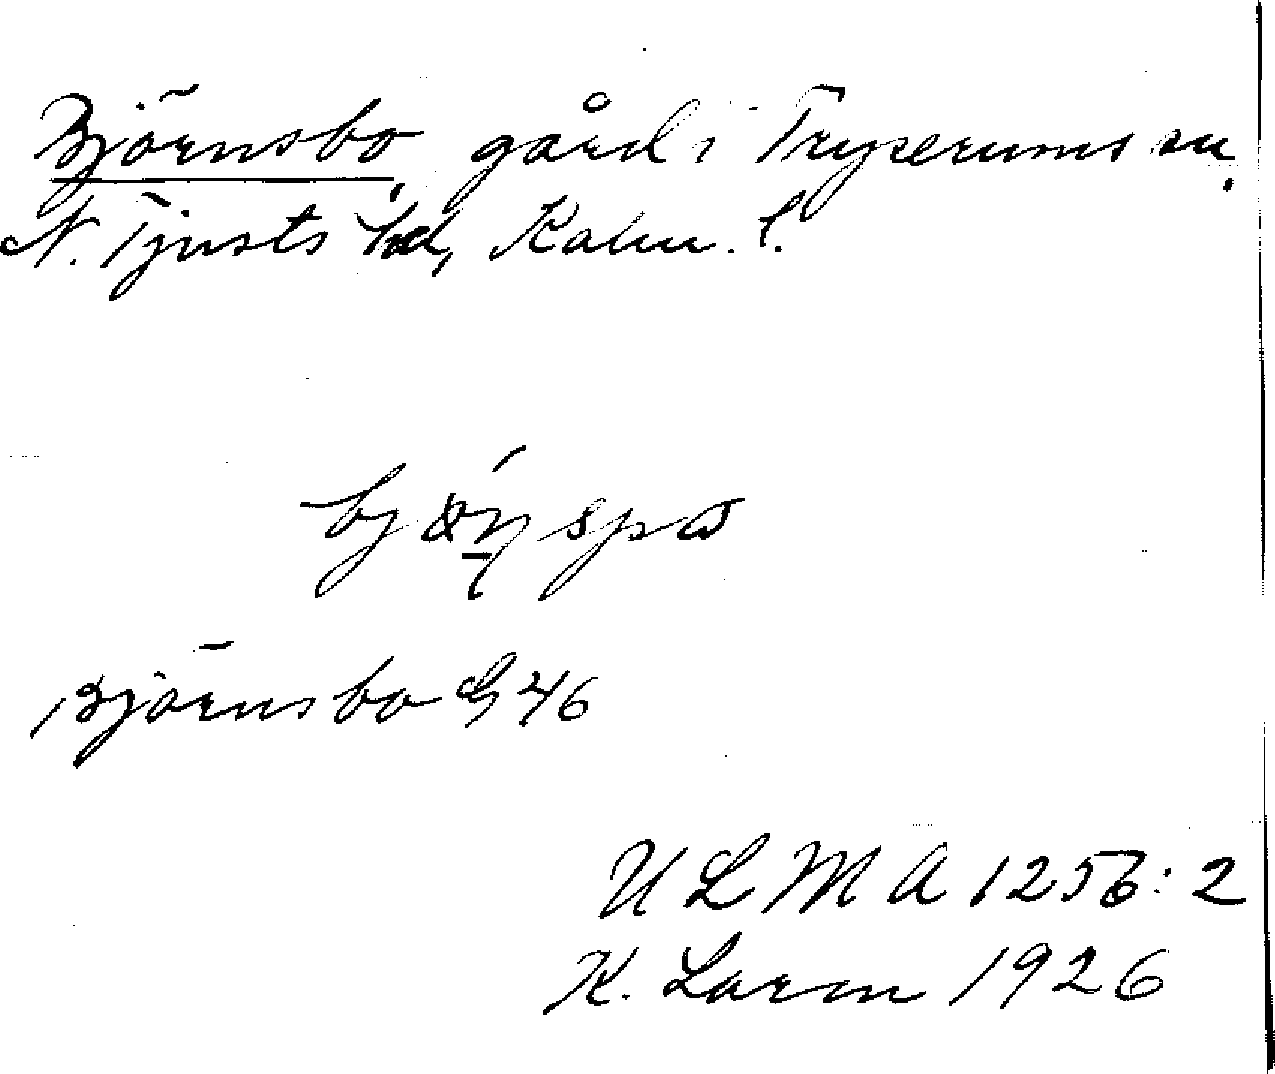 Björnsbo, gård i Tryserums sn.
N. Tjusts hd, Kalm. l.
Björnsbo G 46
U L M A 1256: 2
K. Larm 1926